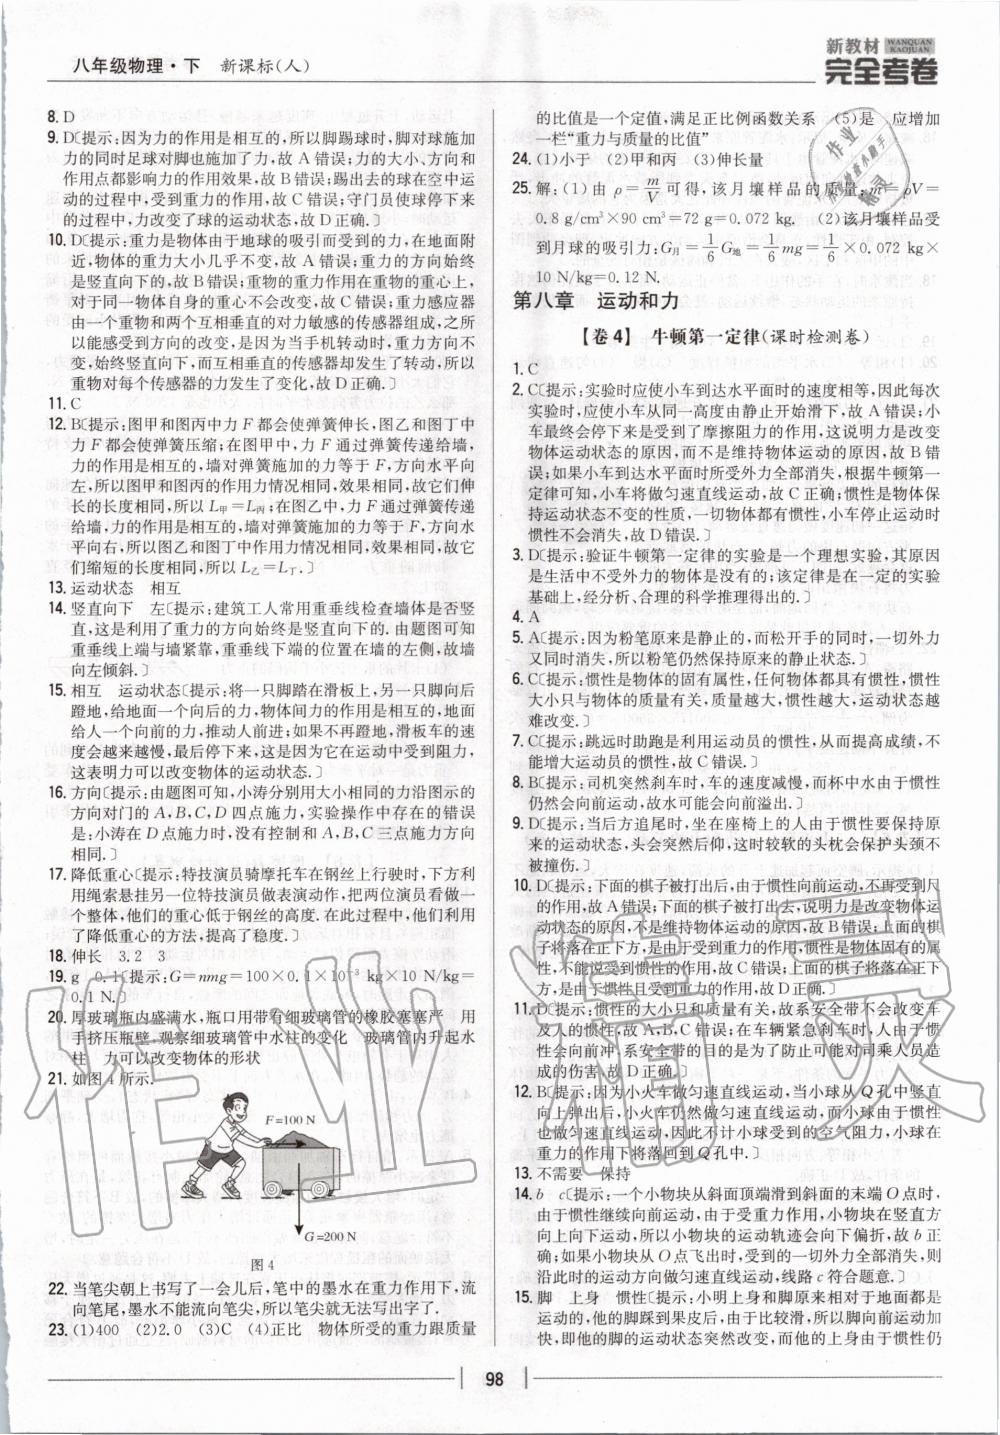 八年级物理·下 新课标(人)
新教材 WANQUAN KAOJUAN
完全考卷
8. D
9. D〔提示:因为力的作用是相互的,所以脚踢球时,脚对球施加
力的同时足球对脚也施加了力,故 A 错误;力的大小、方向和
作用点都影响力的作用效果,故 B 错误;踢出去的球在空中运
动的过程中,受到重力的作用,故 C 错误;守门员使球停下来
的过程中,力改变了球的运动状态,故 D 正确.〕
10. D〔提示:重力是物体由于地球的吸引而受到的力,在地面附
近,物体的重力大小几乎不变,故 A 错误;重力的方向始终
是竖直向下的,故 B 错误;重物的重力作用在重物的重心上,
对于同一物体自身的重心不会改变,故 C 错误;重力感应器
由一个重物和两个互相垂直的对力敏感的传感器组成,之所
以能感受到方向的改变,是因为当手机转动时,重力方向不
变,始终竖直向下,而互相垂直的传感器却发生了转动,所以
重物对每个传感器的力发生了变化,故 D 正确.〕
11. C
12. B〔提示:图甲和图丙中力 F 都会使弹簧伸长,图乙和图丁中
力 F 都会使弹簧压缩;在图甲中,力 F 通过弹簧传递给墙,
力的作用是相互的,墙对弹簧施加的力等于 F,方向水平向
左,所以图甲和图丙的作用力情况相同,效果相同,故它们伸
长的长度相同,所以 L甲=L丙;在图乙中,力 F 通过弹簧传递
给墙,力的作用是相互的,墙对弹簧施加的力等于 F,方向水
平向右,所以图乙和图丁中作用力情况相同,效果相同,故它
们缩短的长度相同,所以 L乙=L丁.〕
13. 运动状态 相互
14. 竖直向下 左〔提示:建筑工人常用重垂线检查墙体是否竖
直,这是利用了重力的方向始终是竖直向下的. 由题图可知
重垂线上端与墙紧靠,重垂线下端的位置在墙的左侧,故墙
向左倾斜.〕
15. 相互 运动状态〔提示:将一只脚踏在滑板上,另一只脚向后
蹬地,给地面一个向后的力,物体间力的作用是相互的,地面
给人一个向前的力,推动人前进;如果不再蹬地,滑板车的速
度会越来越慢,最后停下来,这是因为它在运动中受到阻力,
这表明力可以改变物体的运动状态.〕
16. 方向〔提示:由题图可知,小涛分别用大小相同的力沿图示的
方向对门的 A,B,C,D 四点施力,实验操作中存在的错误
是:小涛在 D 点施力时,没有控制和 A,B,C 三点施力方向
相同.〕
17. 降低重心〔提示:特技演员骑摩托车在钢丝上行驶时,下方利
用绳索悬挂另一位特技演员做表演动作,把两位演员看做一
个整体,他们的重心低于钢丝的高度. 在此过程中,他们利用
了降低重心的方法,提高了稳度.〕
18. 伸长 3.2 3
19. g 0.1〔提示:G=nmg=100×0.1×10⁻³ kg×10 N/kg=
0.1 N.〕
20. 厚玻璃瓶内盛满水,瓶口用带有细玻璃管的橡胶塞塞严 用
手挤压瓶壁,观察细玻璃管中水柱的变化 玻璃管内升起水
柱 力可以改变物体的形状
21. 如图 4 所示.
F=100 N
G=200 N
图 4
22. 当笔尖朝上书写了一会儿后,笔中的墨水在重力作用下,流
向笔尾,墨水不能流向笔尖,所以笔尖就无法写出字了.
23. (1)400 (2)2.0 (3)C (4)正比 物体所受的重力跟质量
的比值是一个定值,满足正比例函数关系 (5)是 应增加
一栏“重力与质量的比值”
24. (1)小于 (2)甲和丙 (3)伸长量
25. 解:(1)由 ρ=m/V 可得,该月壤样品的质量:m=ρV=
0.8 g/cm³×90 cm³=72 g=0.072 kg. (2)该月壤样品受
到月球的吸引力:G月=1/6 G地=1/6 mg=1/6×0.072 kg×
10 N/kg=0.12 N.
第八章 运动和力
【卷 4】 牛顿第一定律(课时检测卷)
1. C
2. C〔提示:实验时应使小车到达水平面时的速度相等,因此每次
实验时,应使小车从同一高度由静止开始滑下,故 A 错误;小
车最终会停下来是受到了摩擦阻力的作用,这说明力是改变
物体运动状态的原因,而不是维持物体运动的原因,故 B 错
误;如果小车到达水平面时所受外力全部消失,根据牛顿第一
定律可知,小车将做匀速直线运动,故 C 正确;惯性是物体保
持运动状态不变的性质,一切物体都有惯性,小车停止运动时
惯性不会消失,故 D 错误.〕
3. D〔提示:验证牛顿第一定律的实验是一个理想实验,其原因
是生活中不受外力的物体是没有的;该定律是在一定的实验
基础上,经分析、合理的科学推理得出的.〕
4. A
5. A〔提示:因为粉笔原来是静止的,而松开手的同时,一切外力
又同时消失,所以粉笔仍然保持原来的静止状态.〕
6. C〔提示:惯性是物体的固有属性,任何物体都具有惯性,惯性
大小只与物体的质量有关,质量越大,惯性越大,运动状态越
难改变.〕
7. C〔提示:跳远时助跑是利用运动员的惯性,从而提高成绩,不
能增大运动员的惯性,故 C 错误.〕
8. B〔提示:司机突然刹车时,车的速度减慢,而杯中水由于惯性
仍然会向前运动,故水可能会向前溢出.〕
9. D〔提示:当后方追尾时,坐在座椅上的人由于惯性要保持原来
的运动状态,头会突然后仰,这时较软的头枕会保护头颈不
被撞伤.〕
10. D〔提示:下面的棋子被打出后,由于惯性向前运动,不再受到尺
的作用,故 A 错误;下面的棋子被打出去,说明力是改变物体运
动状态的原因,不是维持物体运动的原因,故 B 错误;上面的棋
子将落在正下方,是由于受到重力的作用,惯性是物体固有的属
性,不能说受到惯性的作用,故 C 错误;上面的棋子将落在正下
方,是由于惯性且受到重力的作用,故 D 正确.〕
11. D〔提示:惯性的大小只和质量有关,故系安全带不会改变车
及人的惯性,故 A,B,C 错误;在车辆紧急刹车时,人由于惯
性会向前冲,系安全带的目的是为了防止可能对司乘人员造
成的伤害,故 D 正确.〕
12. B〔提示:因为小火车做匀速直线运动,当小球从 Q 孔中竖直
向上弹出后,小火车仍然做匀速直线运动,而小球由于惯性
也做匀速直线运动,因此不计小球受到的空气阻力,小球在
重力的作用下将落回到 Q 孔中.〕
13. 不需要 保持
14. b c〔提示:一个小物块从斜面顶端滑到斜面的末端 O 点时,
由于惯性继续向前运动,由于受重力作用,小物块在竖直方
向上向下运动,所以小物块的运动轨迹会向下偏折,故 b 正
确;如果小物块从 O 点飞出时,受到的一切外力全部消失,则
沿此时的运动方向做匀速直线运动,线路 c 符合题意.〕
15. 脚 上身 惯性〔提示:小明上身和脚原来相对于地面都是
运动的,他的脚踩到果皮后,由于比较滑,所以脚向前运动加
快,即他的脚的运动状态突然改变,而他的上身由于惯性仍
98
作业精灵